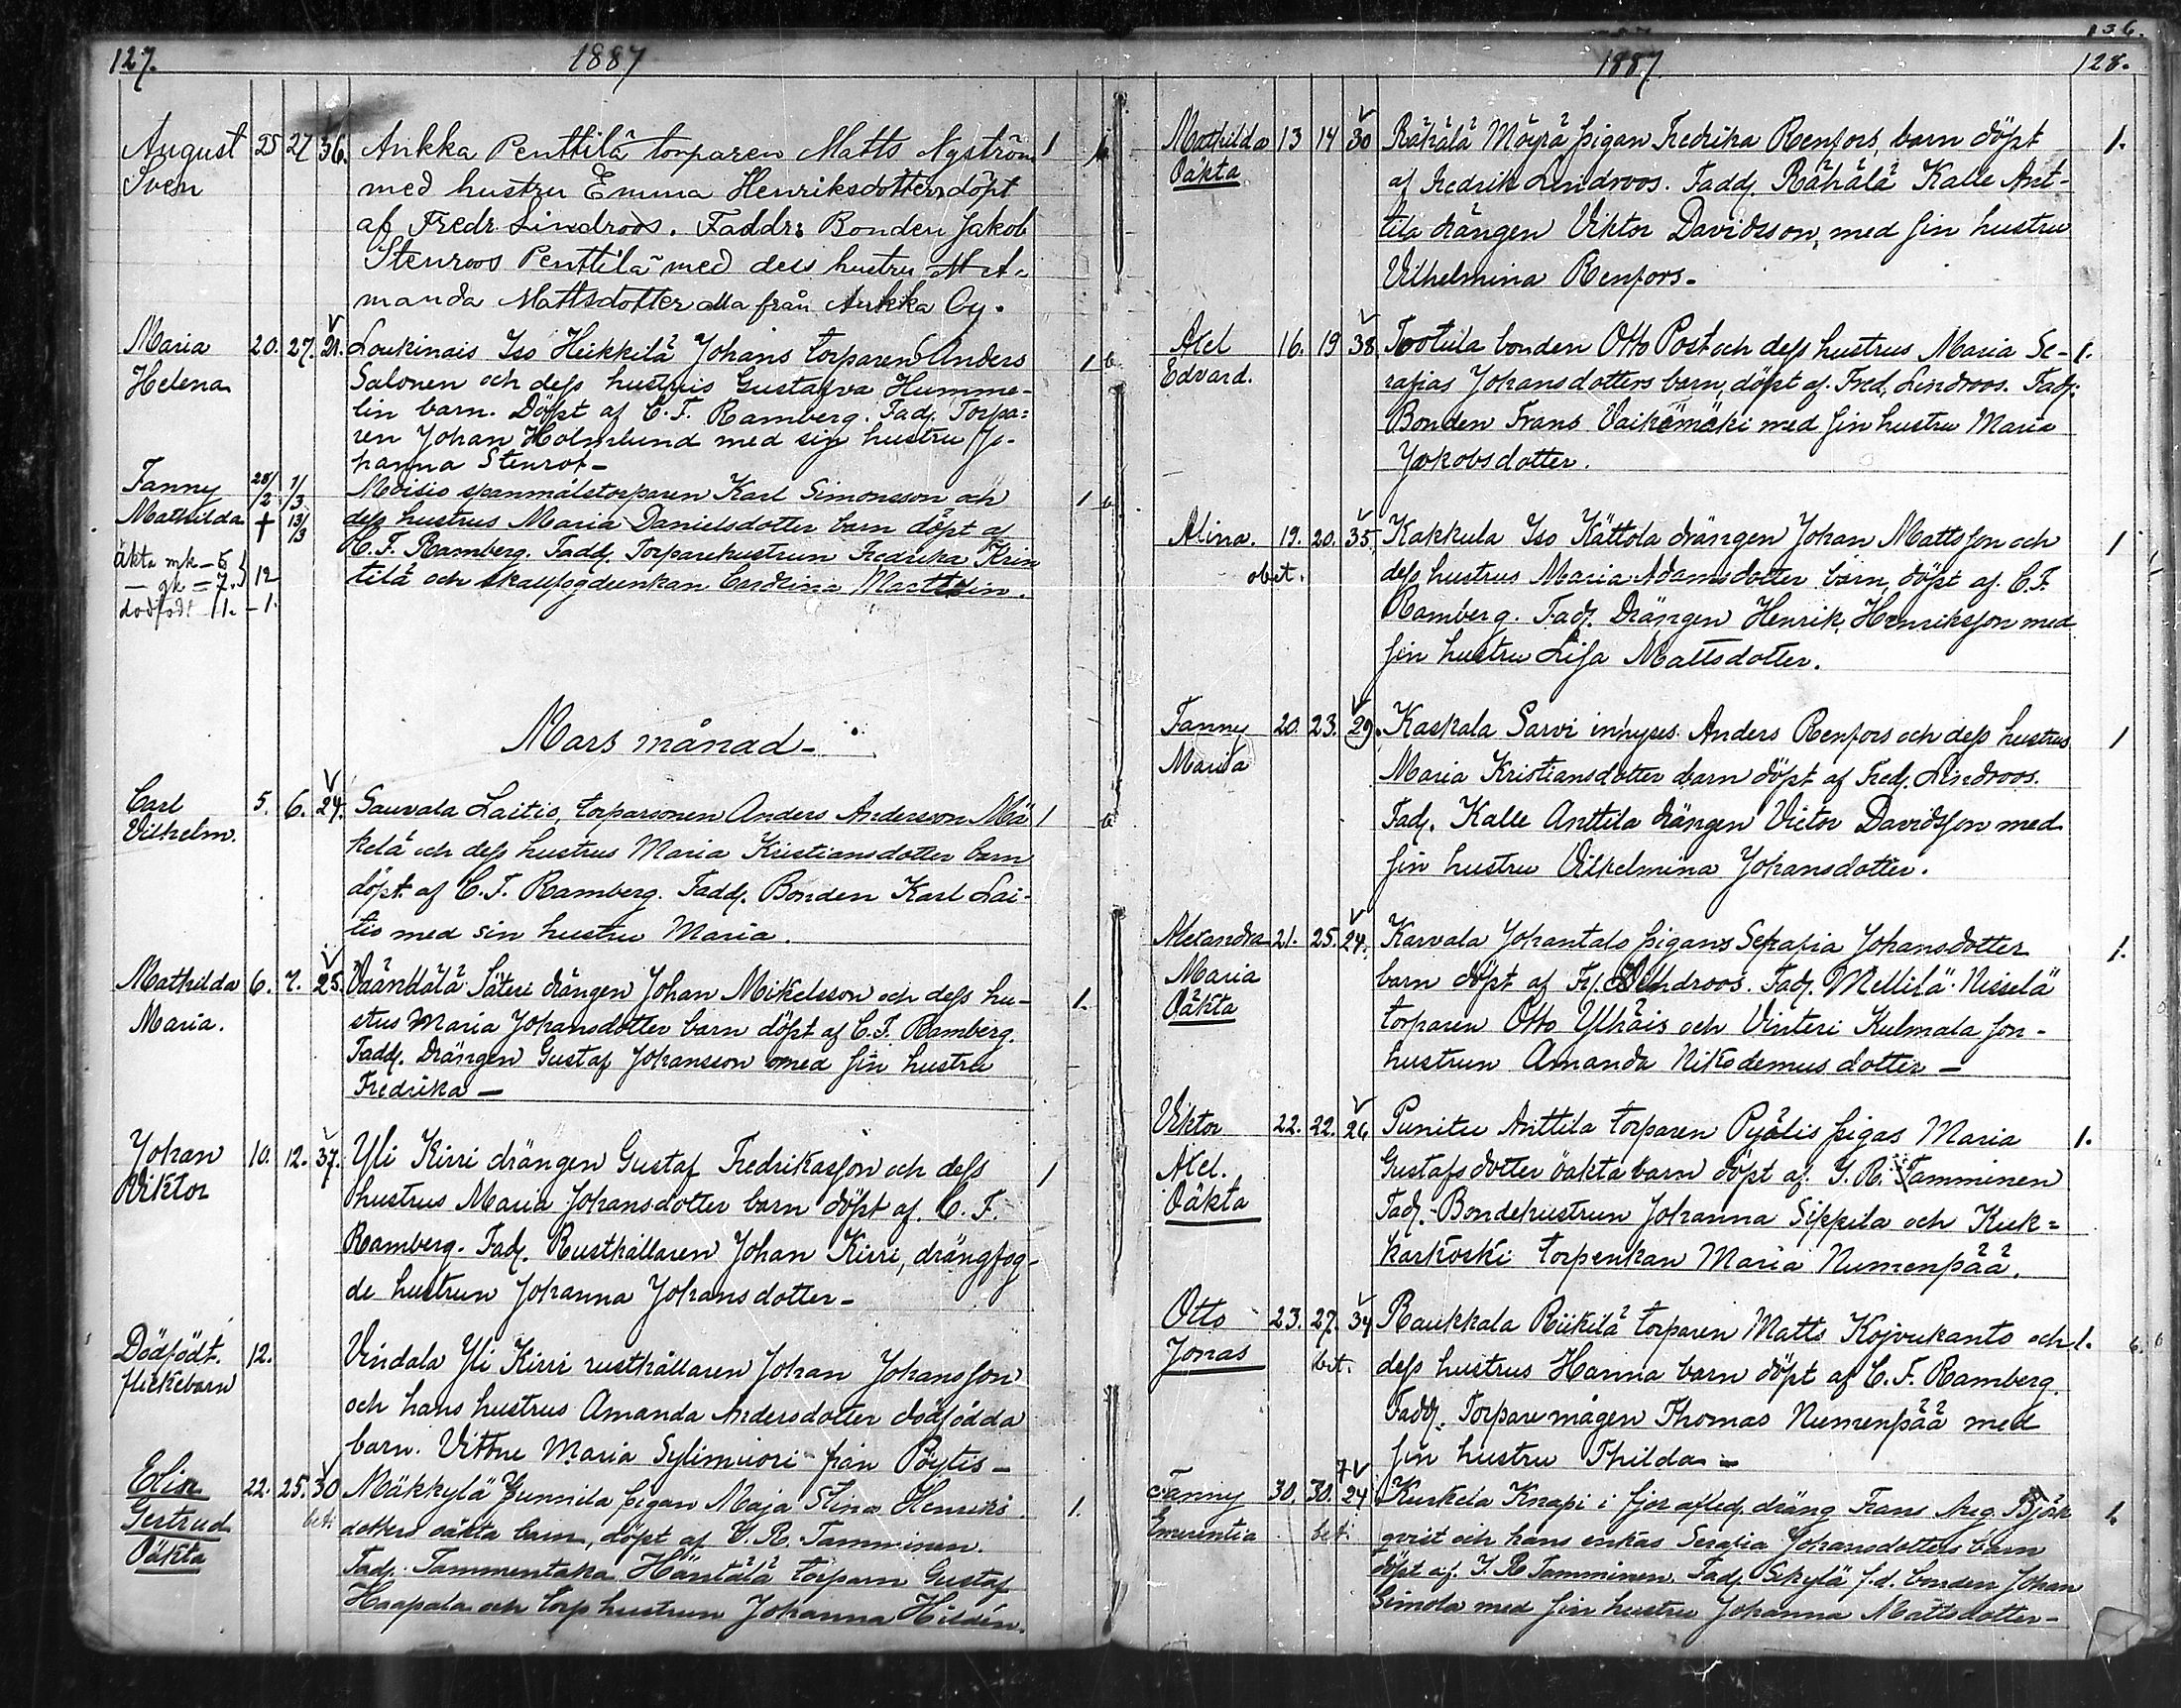 127.
1887
August 25 27 36. Ankka Penttilä torparen Matts Nyström 1
Sven med hustru Emma Henriksdotter, döpt
af Fredr. Lindroos. Faddr: Bonden Jakob
Stenroos Penttilä med dess hustru A-
manda Mattsdotter alla från Ankka By.
Maria 20. 27. 21. Loukinais Iso Heikkilä Johans torparen Anders 1
Helena Salonen och dess hustrus Gustafva Humme-
lin barn. Döpt af C. F. Ramberg. Fad. Torpa=
ren Johan Holmlund med sin hustru Jo-
hanna Stenrot-
Fanny 28/2 1/3 Moisio spanmålstorparen Karl Simonsson och 1
Mathilda + 13/3 dess hustrus Maria Danielsdotter barn döpt af
C. F. Ramberg. Fadd. Torparehustrun Fredrika
äkta mk - 5 } 12 tilä och skallfogdeenkan Carolina
- qk = 7.
dödfödt 1. - 1.
Mars månad -
Carl 5. 6. 24. Sauvala Laitis, torparsonen Anders Andersson Mä 1
Vilhelm. kelä och dess hustrus Maria Kristiansdotter barn
döpt af C. F. Ramberg. Fadd. Bonden Karl Lai-
tis med sin hustru Maria.
Mathilda 6. 7. 25. Väändälä Säteri drängen Johan Mikelsson och dess hu- 1.
Maria. strus Maria Johansdotter barn döpt af C. F. Ramberg.
Fadd. Drängen Gustaf Johansson med sin hustru
Fredrika -
Johan 10. 12. 37. Yli Kirri drängen Gustaf Fredriksson och dess 1
Viktor hustrus Maria Johansdotter barn döpt af. C. F.
Ramberg. Fad. Rusthållaren Johan Kirri, drängfog-
de hustrun Johanna Johansdotter -
Dödfödt. 12. Vindala Yli Kirri rusthållaren Johan Johansson
flickebarn och hans hustrus Amanda Andersdotter dödfödda
barn. Vittne Maria Sylimuori från Pöytis -
Elin 22. 25. 30 Mäkkylä Junnila pigan Maja Stina Henriks 1.
Gertrud bet: dotters oäkta barn, döpt af J. R. Tamminen.
Oäkta Fad. Tammentaka Häntälä torparn Gustaf
Haapala och torphustrun Johanna Hildén.
136.
1887
128.
Mathilda 13 14 30 Rähälä Möyrä pigan Fredrika Renfors, barn döpt 1.
Oäkta af Fredrik Lindroos. Fadd. Rähälä Kalle Ant-
tila drängen Viktor Davidsson, med sin hustru
Vilhelmina Renfors -
Axel 16. 19 38 Tootula bonden Otto Post och dess hustrus Maria Se- 1.
Edvard. rafias Johansdotters barn, döpt af. Fred. Lindroos. Fad.
Bonden Frans Vaikömäki med sin hustru Maria
Jakobsdotter.
Alina. 19. 20. 35. Kakkula Iso Kättola drängen Johan Mattsson och 1
obet. dess hustrus Maria Adamsdotter barn, döpt af. C. F.
Ramberg. Fad. Drängen Henrik, Henriksson med
sin hustru Lisa Mattsdotter.
Fanny 20. 23. 29. Kaskala Sarvi inhyses Anders Renfors och dess hustrus 1
Maria Maria Kristiansdotter barn döpt af Fred. Lindroos.
Fad. Kalle Anttila drängen Victor Davidsson med
sin hustru Vilhelmina Johansdotter.
Alexandra 21. 25. 24. Karvala Johantalo pigans Serafia Johansdotter 1.
Maria barn döpt af Fr. Lindroos. Fad. Mellilä Nisselä
Oäkta torparen Otto Ylhäis och Vinteri Kulmala son-
hustrun Amanda Nikodemusdotter -
Viktor 22. 22. 26 Punitu Anttila torparen Pyölis pigas Maria 1.
Axel. Gustafsdotter oäkta barn döpt af. J. R. Tamminen
Oäkta Fad. Bondehustrun Johanna Sippila och Kuk=
karkoski torpenkan Maria Numenpää.
Otto 23. 27. 34 Raukkala Riikilä torparen Matts Kojvukanto och 1. 6.
Jonas bet. dess hustrus Hanna barn döpt af C. F. Ramberg.
Fadd. Torparemågen Thomas Numenpää med
sin hustru Thilda -
Fanny 30. 30. 24 Kurkela Knapi i fjor afled. dräng Frans Aug. Björk 1.
Emerentia bet. qvist och hans enkas Serafia Johansdotters barn
döpt af. J. R Tamminen. Fad. Sikylä f.d. bonden Johan
Simola med sin hustru Johanna Mattsdotter -